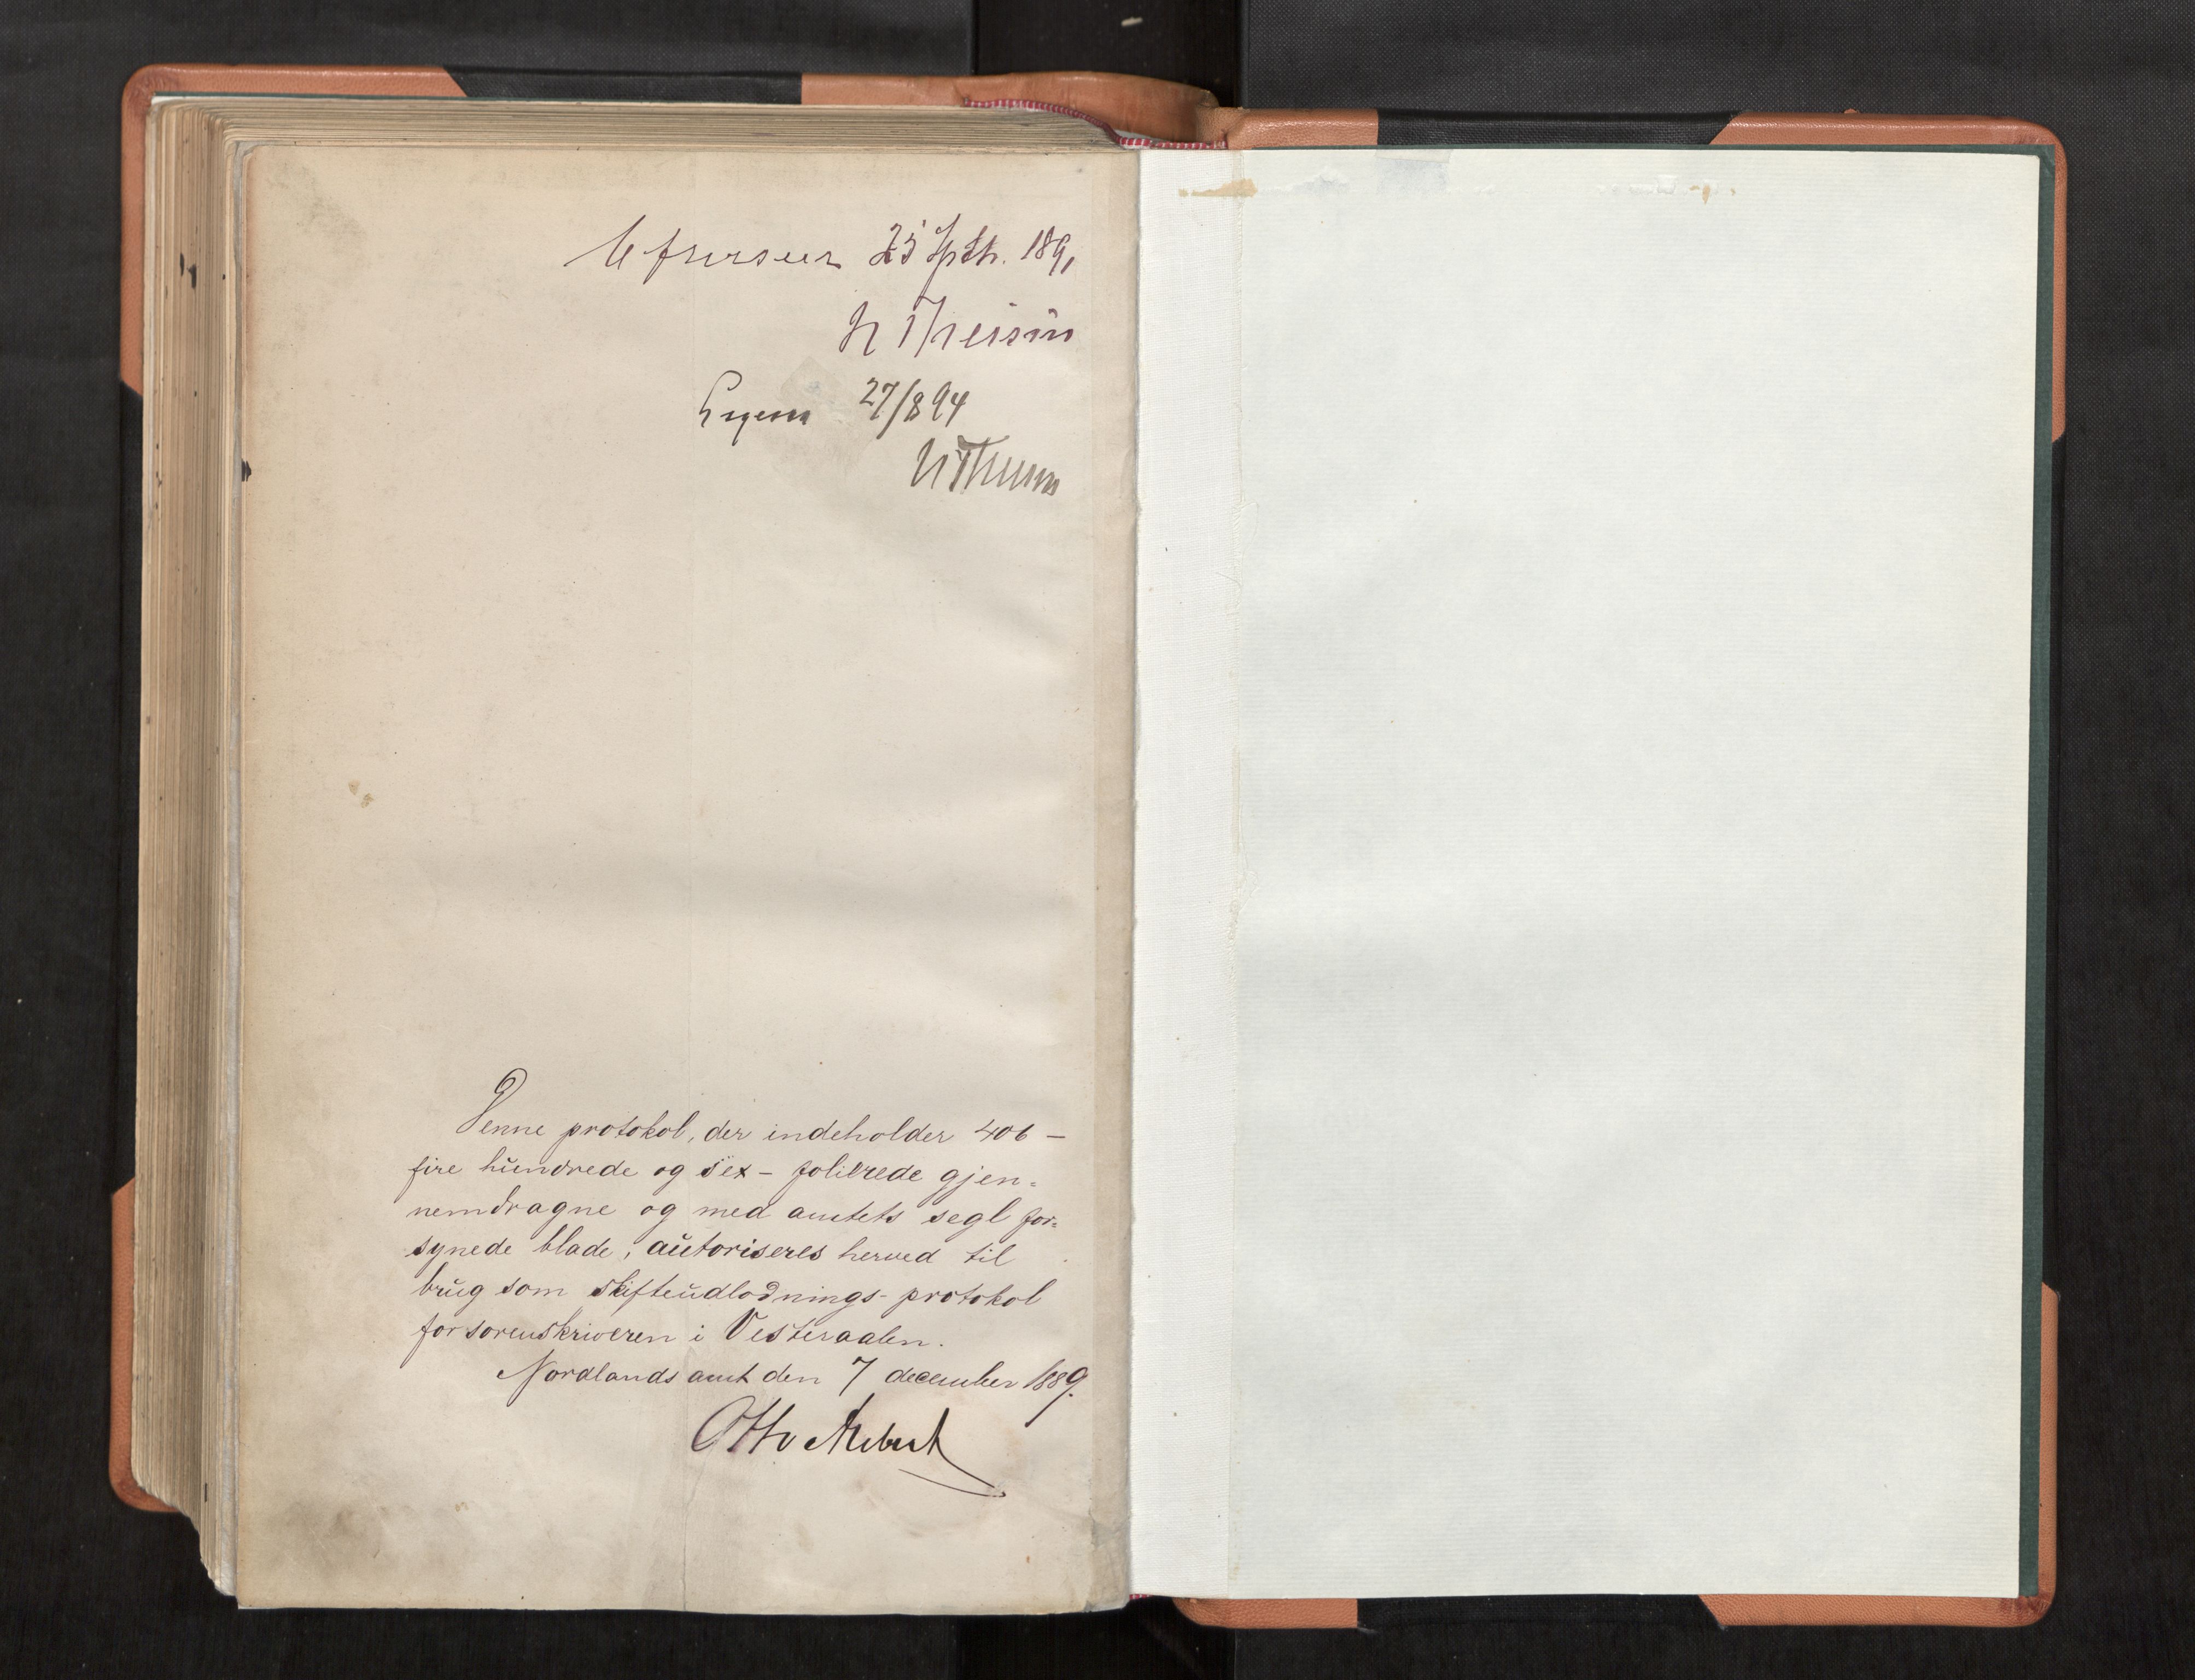 25 Septb. 1891
N Theisen
27/8 94
NTheisen
Denne protokol, der indeholder 406 –
fire hundrede og sex – folierede gjen=
nemdragne og med amtets segl for=
synede blade, autoriseres herved til
brug som skifteudlodnings-protokol
for sorenskriveren i Vesteraalen.
Nordlands amt den 7 december 1889.
Otto